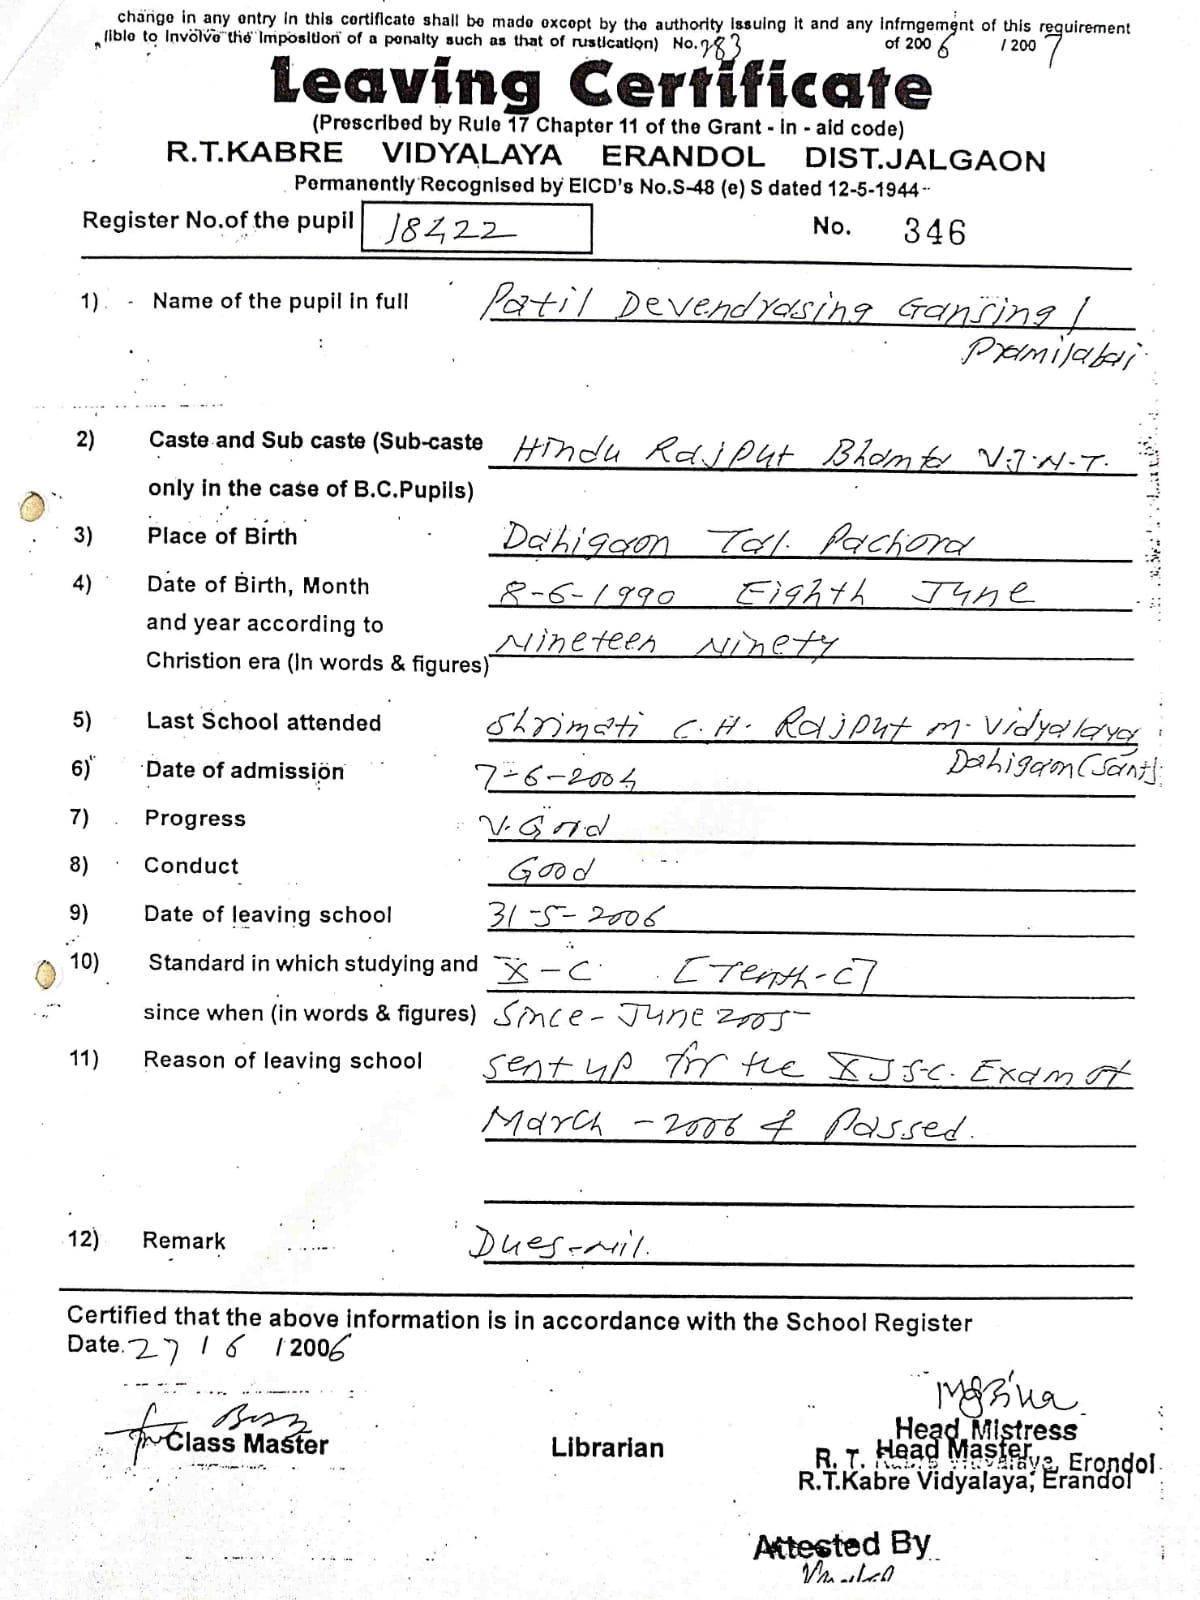 change in any entry in this certificate shall be made except by the authority issuing it and any infrngement of this requirement
lible to Involve the Imposition of a penalty such as that of rustication) No. 283 of 2006 / 2007
Leaving Certificate
(Prescribed by Rule 17 Chapter 11 of the Grant - in - aid code)
R.T.KABRE VIDYALAYA ERANDOL DIST.JALGAON
Permanently Recognised by EICD's No.S-48 (e) S dated 12-5-1944
Register No.of the pupil 18422 No. 346
1) Name of the pupil in full Patil Devendrasing Gansing /
Pramilabai
2) Caste and Sub caste (Sub-caste Hindu Rajput Bhamta V.J.N.T.
only in the case of B.C.Pupils)
3) Place of Birth Dahigaon Tal. Pachora
4) Date of Birth, Month 8-6-1990 Eighth June
and year according to Nineteen Ninety
Christion era (In words & figures)
5) Last School attended Shrimati C.H. Rajput M. Vidyalaya
Dahigaon (Sant)
6) Date of admission 7-6-2004
7) Progress V. Good
8) Conduct Good
9) Date of leaving school 31-5-2006
10) Standard in which studying and X - C [Tenth-C]
since when (in words & figures) Since - June 2005
11) Reason of leaving school sent up for the S.S.C. Exam of
March - 2006 & Passed.
12) Remark Dues-Nil.
Certified that the above information is in accordance with the School Register
Date. 27 / 6 / 2006
Class Master Librarian Head Mistress
Head Master
R. T. Erondol
R.T.Kabre Vidyalaya, Erandol
Attested By